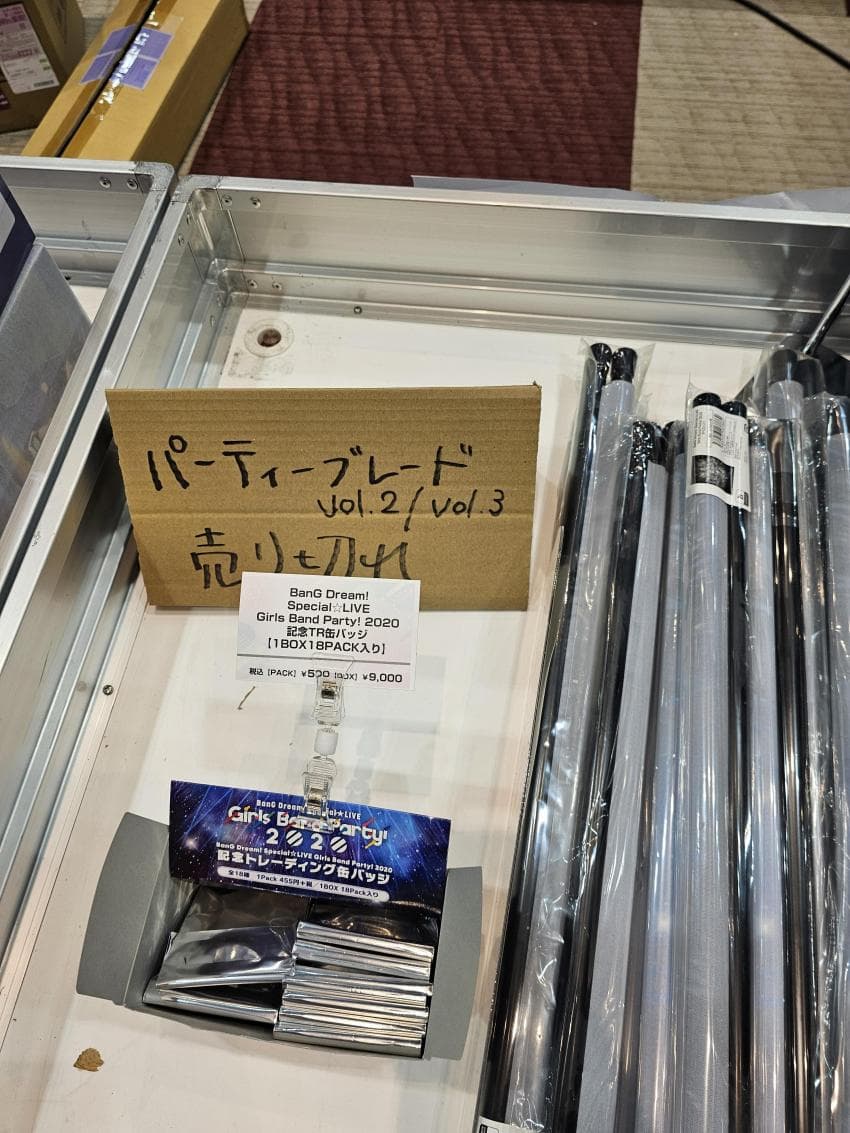 パーティーブレード
vol.2/vol.3
売り切れ
BanG Dream!
Special☆LIVE
Girls Band Party! 2020
記念TR缶バッジ
【1BOX18PACK入り】
税込【PACK】¥500【BOX】¥9,000
BanG Dream! Special☆LIVE
Girls Band Party!
2020
BanG Dream! Special☆LIVE Girls Band Party! 2020
記念トレーディング缶バッジ
全18種 1Pack 455円+税/1BOX 18Pack入り